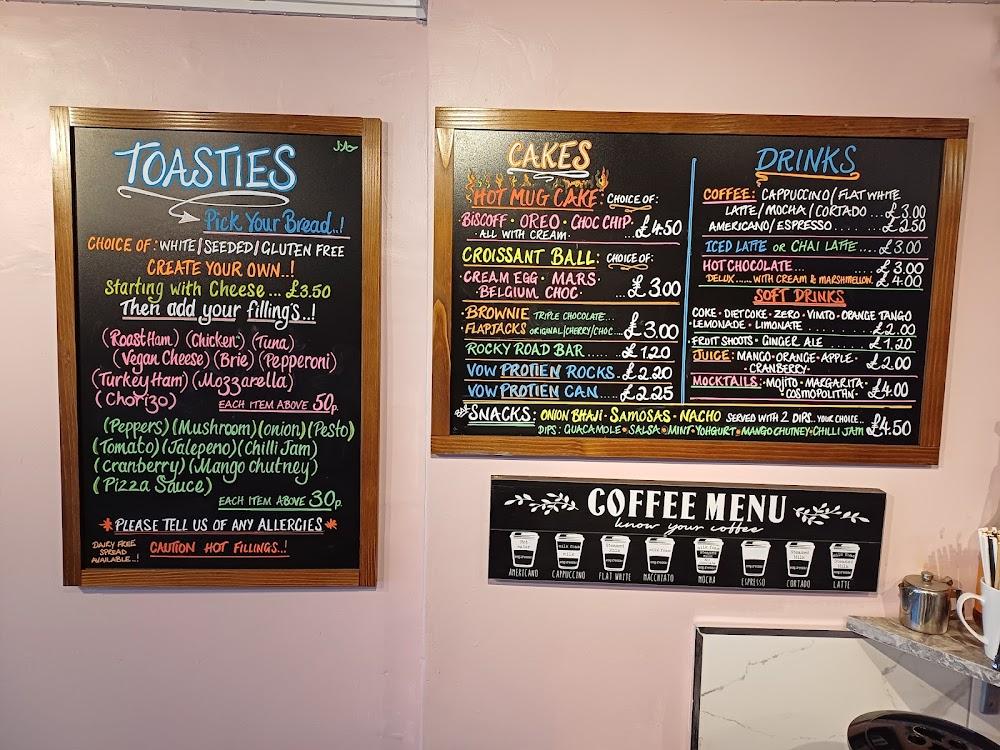 TOASTIES
Pick Your Bread..!
CHOICE OF: WHITE/SEEDED/GLUTEN FREE
CREATE YOUR OWN..!
Starting with Cheese ... £3.50
Then add your filling's..!
(Roast Ham) (Chicken) (Tuna)
(Vegan Cheese) (Brie) (Pepperoni)
(Turkey Ham) (Mozzarella)
(Chorizo)
EACH ITEM ABOVE 50p.
(Peppers) (Mushroom) (onion) (Pesto)
(Tomato) (Jalepeno) (Chilli Jam)
(Cranberry) (Mango chutney)
(Pizza Sauce)
EACH ITEM ABOVE 30p.
*PLEASE TELL US OF ANY ALLERGIES*
DAIRY FREE
SPREAD
AVAILABLE..!
CAUTION HOT FILLINGS..!
CAKES
HOT MUG CAKE: CHOICE OF:
BISCOFF · OREO · CHOC CHIP
· ALL WITH CREAM · ... £4.50
CROISSANT BALL: CHOICE OF:
· CREAM EGG · MARS ·
· BELGIUM CHOC · ... £3.00
· BROWNIE TRIPLE CHOCOLATE...
· FLAPJACKS ORIGINAL/CHERRY/CHOC... £3.00
ROCKY ROAD BAR ...... £1.20
VOW PROTIEN ROCKS. £2.20
VOW PROTIEN CAN.... £2.25
DRINKS
COFFEE: CAPPUCCINO/FLAT WHITE
LATTE/MOCHA/CORTADO ... £3.00
AMERICANO/ESPRESSO ...... £2.50
ICED LATTE OR CHAI LATTE.... £3.00
HOT CHOCOLATE... .... £3.00
DELUX...... WITH CREAM & MARSHMELLON. £4.00
SOFT DRINKS
COKE · DIET COKE · ZERO · VIMTO · ORANGE TANGO
· LEMONADE · LIMONATE ............ £2.00
· FRUIT SHOOTS · GINGER ALE ........ £1.20
JUICE: MANGO · ORANGE · APPLE ·
· CRANBERRY · £2.00
MOCKTAILS: · MOJITO · MARGARITA ·
· COSMOPOLITAN · £4.00
SNACKS: ONION BHAJI · SAMOSAS · NACHO SERVED WITH 2 DIPS.. YOUR CHOICE..
DIPS: GUACAMOLE · SALSA · MINT YOHGURT · MANGO CHUTNEY · CHILLI JAM £4.50
COFFEE MENU
know your coffee
AMERICANO CAPPUCCINO FLAT WHITE MACCHIATO MOCHA ESPRESSO CORTADO LATTE